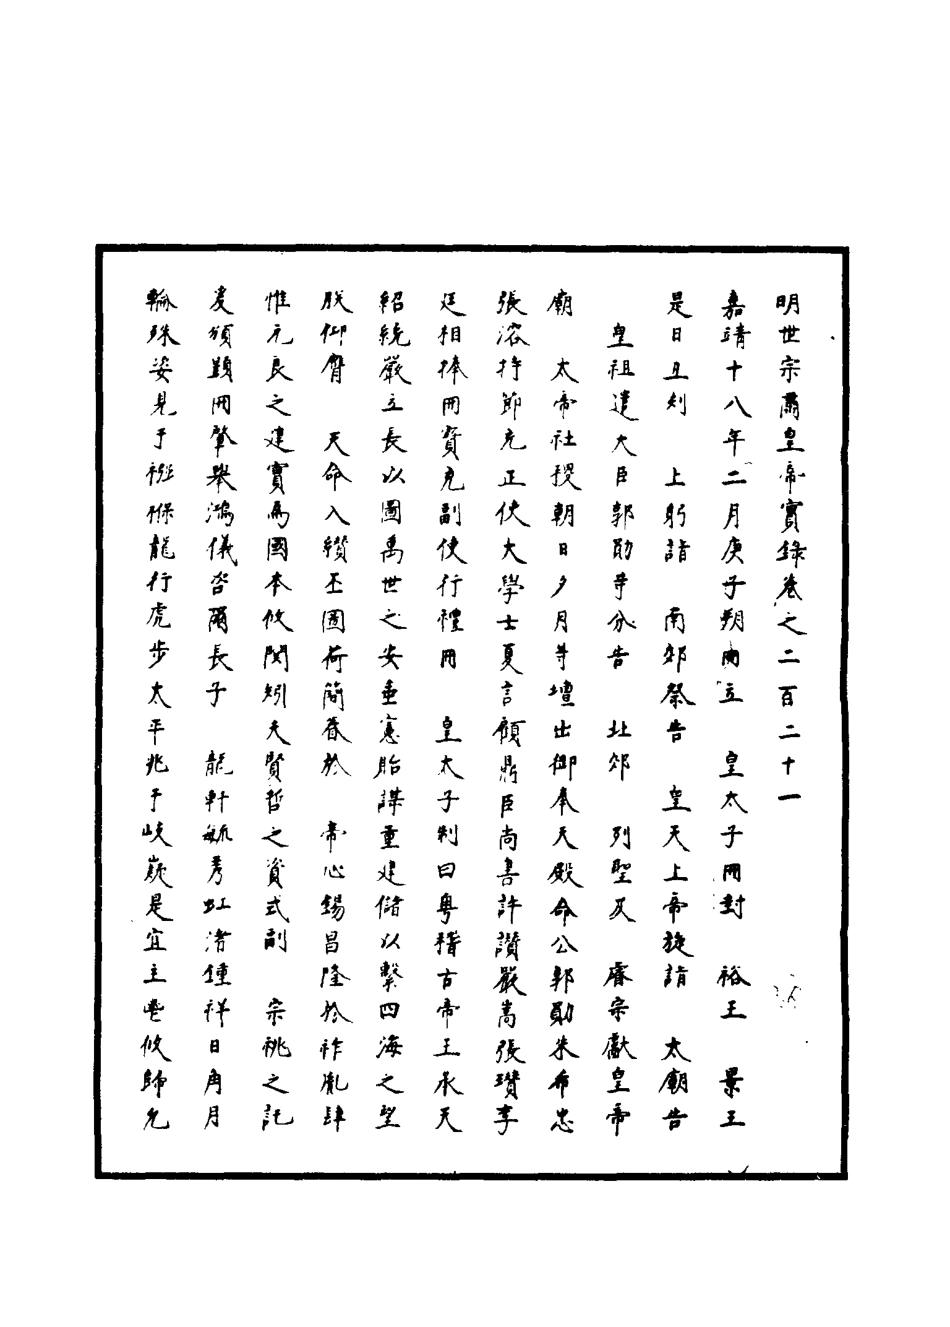 明世宗肅皇帝實錄卷之二百二十一
嘉靖十八年二月庚子朔冊立 皇太子冊封 裕王 景王
是日丑刻 上躬詣 南郊祭告 皇天上帝旋詣 太廟告
皇祖遣大臣郭勛等分告 北郊 列聖及 睿宗獻皇帝
廟 太帝社稷朝日夕月等壇出御奉天殿命公郭勛朱希忠
張溶持節充正使大學士夏言顧鼎臣尚書許讚嚴嵩張瓚李
廷相捧冊寶充副使行禮冊 皇太子制曰粵稽古帝王承天
紹統嚴立長以圖萬世之安垂憲貽謀重建儲以繫四海之望
朕仰膺 天命入纘丕圖荷簡眷於 帝心錫昌隆於祚胤肆
惟元良之建實為國本攸関矧夫賢哲之資式副 宗祧之託
爰頒顯冊肇舉鴻儀咨爾長子 龍軒毓秀虹渚鍾祥日角月
輪殊姿見于襁褓龍行虎步太平兆于岐嶷是宜主鬯攸歸允